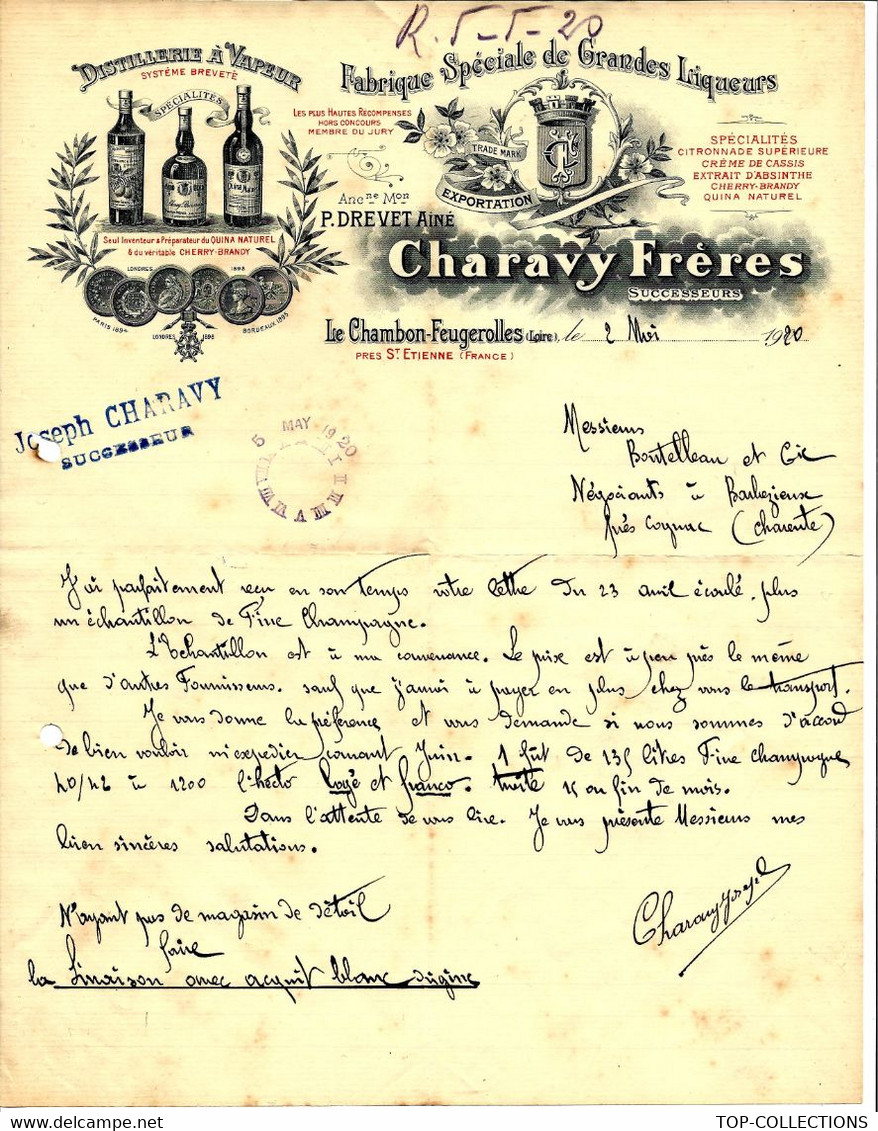 R. 5-5-20
DISTILLERIE À VAPEUR
SYSTÈME BREVETÉ
SPÉCIALITÉS
Seul Inventeur & Préparateur du QUINA NATUREL
& du véritable CHERRY-BRANDY
LONDRES 1898
PARIS 1894
LONDRES 1896
BORDEAUX 1895
Fabrique Spéciale de Grandes Liqueurs
LES PLUS HAUTES RÉCOMPENSES
HORS CONCOURS
MEMBRE DU JURY
TRADE MARK
EXPORTATION
SPÉCIALITÉS
CITRONNADE SUPÉRIEURE
CRÈME DE CASSIS
EXTRAIT D'ABSINTHE
CHERRY-BRANDY
QUINA NATUREL
Anc.ne Mon
P. DREVET AINÉ
Charavy Frères
SUCCESSEURS
Le Chambon-Feugerolles (Loire), le 2 Mai 1920
PRÈS ST. ETIENNE (FRANCE)
Joseph CHARAVY
SUCCESSEUR
5 MAY 1920
Messieurs
Boutelleau et Cie
Négociants à Barbezieux
près Cognac (Charente)
J'ai parfaitement reçu en son temps votre lettre du 23 avril écoulé, plus
un échantillon de Fine Champagne.
L'Echantillon est à ma convenance. Le prix est à peu près le même
que d'autres Fournisseurs. sauf que j'aurai à payer en plus chez vous le transport.
Je vous donne la préférence et vous demande si nous sommes d'accord
de bien vouloir m'expédier courant Juin. 1 fût de 135 litres Fine Champagne
40/42 à 1200 l'hecto logé et franco. traite 15 ou fin de mois.
Dans l'attente de vous lire. Je vous présente Messieurs mes
bien sincères salutations.
Charavy Joseph
N'ayant pas de magasin de détail
faire
la livraison avec acquit blanc
TOP-COLLECTIONS